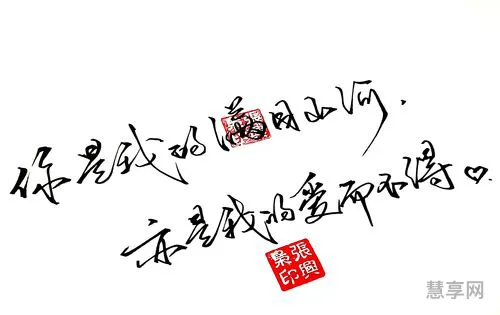 你是我的满目山河.
亦是我的爱而不得♡.
張興梟印
慧享网